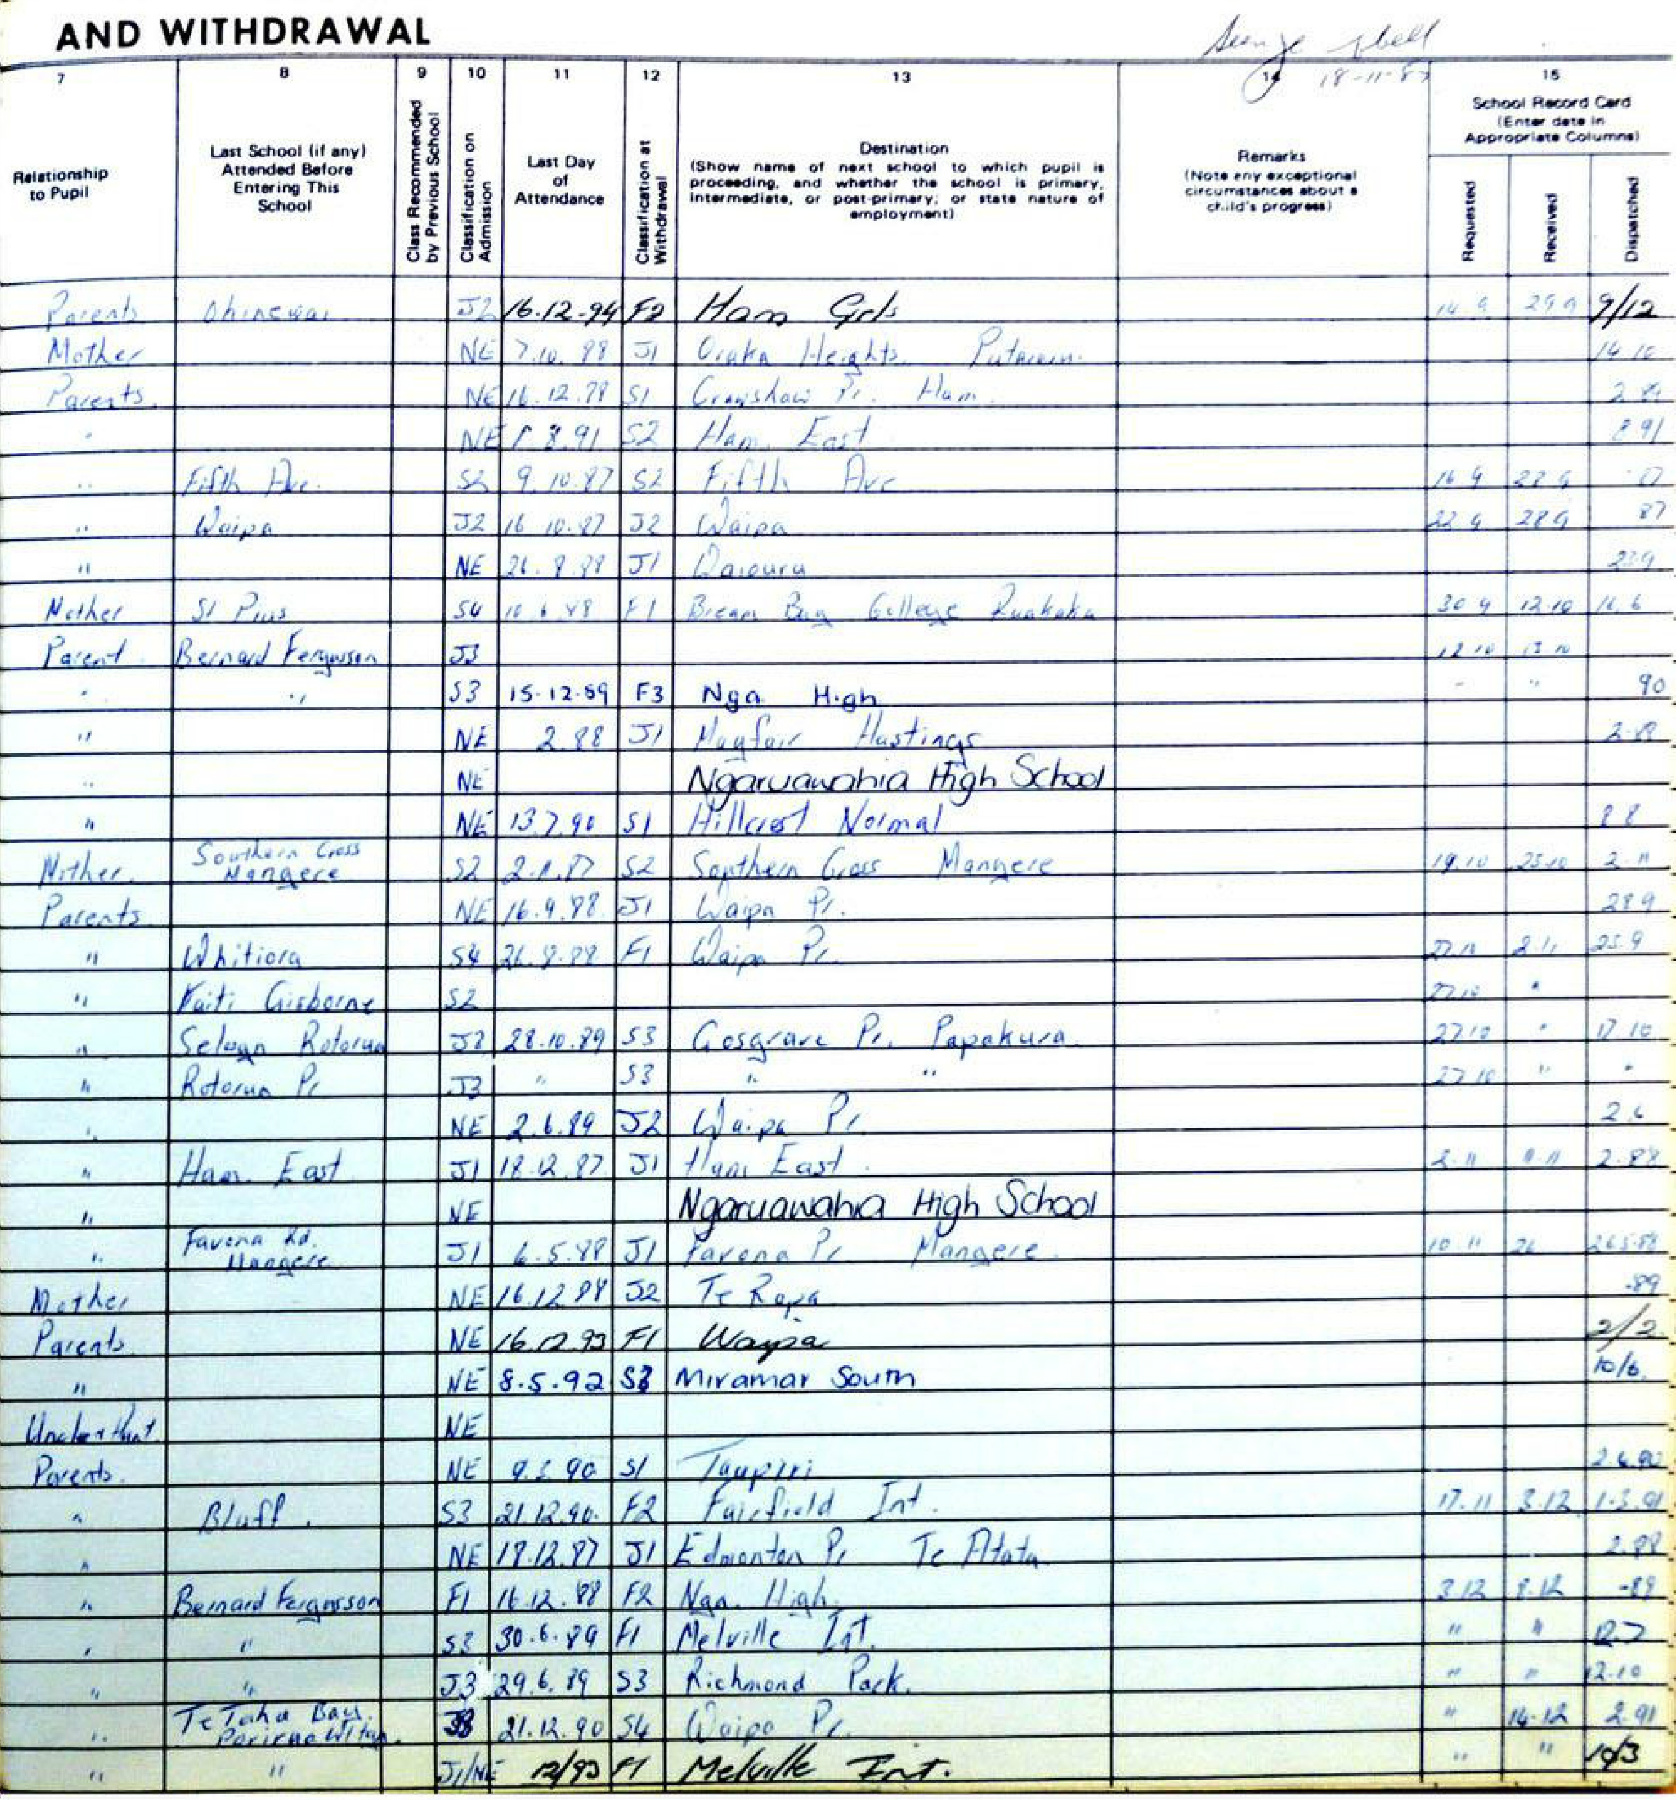 AND WITHDRAWAL
18-11-87
7 8 9 10 11 12 13 14 15
Relationship to Pupil
Last School (if any) Attended Before Entering This School
Class Recommended by Previous School
Classification on Admission
Last Day of Attendance
Classification at Withdrawal
Destination
(Show name of next school to which pupil is proceeding, and whether the school is primary, intermediate, or post-primary; or state nature of employment)
Remarks
(Note any exceptional circumstances about a child's progress)
School Record Card
(Enter date in Appropriate Columns)
Requested Received Dispatched
Parents Ohinewai J2 16.12.94 F2 Ham Grls 14 9 29 9 9/12
Mother NE 7.10.88 J1 Oraka Heights Putaruru 14 10
Parents NE 16.12.88 S1 Crawshaw Pr. Ham. 2 89
" NE 8.91 S2 Ham. East 8 91
" Fifth Ave. S2 9.10.87 S2 Fifth Ave 16 9 22 9
" Waipa J2 16 10.87 J2 Waipa 22 9 28 9 87
" NE 26.8.88 J1 Waiouru 23 9
Mother St Pius S4 10.6.88 F1 Bream Bay College Ruakaka 30 9 12.10 16.6
Parent Bernard Fergusson J3 12 10 13 10
" " S3 15-12-89 F3 Nga High " " 90
" NE 2.88 J1 Mayfair Hastings 2.88
" NE Ngaruawahia High School
" NE 13.7.90 S1 Hillcrest Normal 8 8
Mother Southern Cross Mangere S2 2.11.87 S2 Southern Cross Mangere 19.10 23.10 2.11
Parents NE 16.9.88 J1 Waipa Pr. 28 9
" Whitiora S4 26.8.88 F1 Waipa Pr. 2.11 23.9
" Kaiti Gisborne S2 27.10 "
" Selwyn Rotorua J2 28.10.89 S3 Cosgrave Pr. Papakura 27.10 " 17.10
" Rotorua Pr J3 " S3 " " 27.10 " "
" NE 2.6.89 J2 Waipa Pr. 2.6
" Ham. East J1 18.12.87 J1 Ham East 2.11 9.11 2.88
" NE Ngaruawahia High School
" Favona Rd. Mangere J1 6.5.88 J1 Favona Pr Mangere 10 11 26 26.5.88
Mother NE 16.12.88 J2 Te Rapa -89
Parents NE 16.12.93 F1 Waipa 2/2
" NE 8.5.92 S3 Miramar South 10/6
Uncle & Aunt NE
Parents. NE 9.3.90 S1 Taupiri 2.4.90
" Bluff. S3 21.12.90. F2 Fairfield Int. 17.11 3.12 1.3.91
" NE 18.12.87 J1 Edmonton Pr Te Atatu 2.88
" Bernard Fergusson F1 16.12.88 F2 Nga. High 3.12 8.12 -89
" " S3 30.6.89 F1 Melville Int. " " 12.7
" " J3 29.6.89 S3 Richmond Park. " " 12.10
" Te Taha Bay. Porirua Wltgn. 21.12.90 S4 Waipa Pr. " 14.12 2.91
" " J1/NE 12/93 F1 Melville Int. " " 10/3